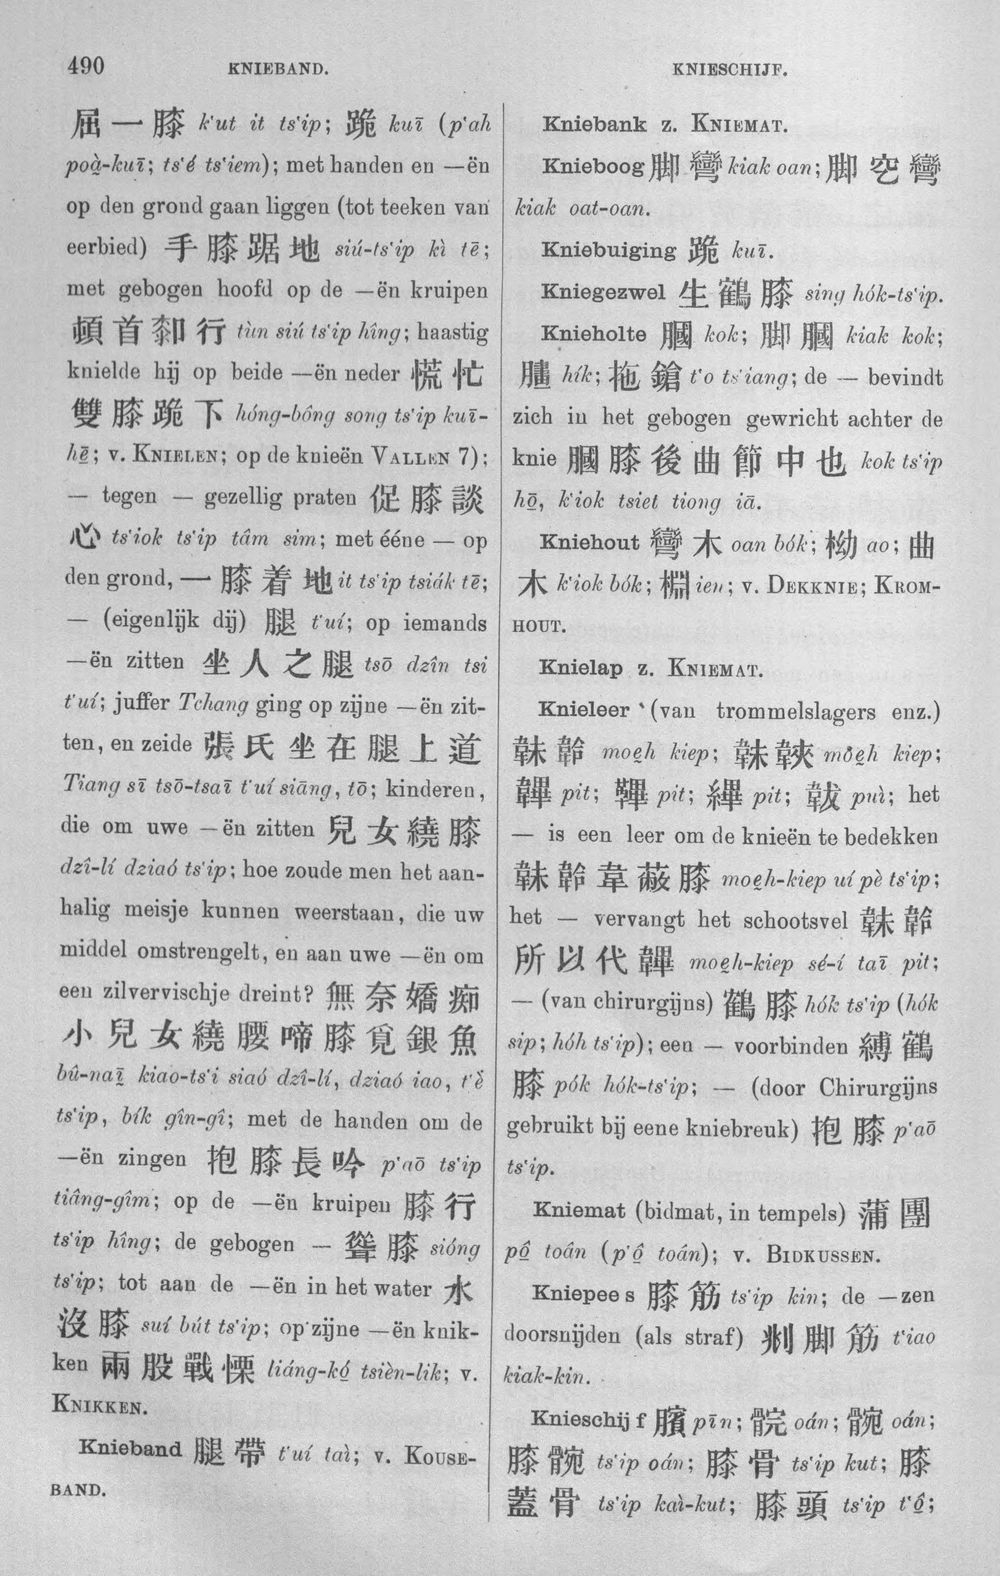 490 KNIEBAND. KNIESCHIJF.
屈一膝 k‘ut it ts‘ip; 跪 kuī (p‘ah
poà̤-kuī; ts‘é ts‘iem); met handen en —ën
op den grond gaan liggen (tot teeken van
eerbied) 手膝踞地 siú-ts‘ip kì tē;
met gebogen hoofd op de —ën kruipen
頓首厀行 tùn siú ts‘ip hîng; haastig
knielde hij op beide —ën neder 慌忙
雙膝跪下 hóng-bông song ts‘ip kuī-
hē̤; v. KNIELEN; op de knieën VALLEN 7);
— tegen — gezellig praten 促膝談
心 ts‘iok ts‘ip tâm sim; met ééne — op
den grond, 一膝着地 it ts‘ip tsiák tē;
— (eigenlijk dij) 腿 t‘uí; op iemands
—ën zitten 坐人之腿 tsō dzîn tsi
t‘uí; juffer Tchang ging op zijne —ën zit-
ten, en zeide 張氏坐在腿上道
Tiang sī tsō-tsaī t‘uí siāng, tō; kinderen,
die om uwe —ën zitten 兒女繞膝
dzî-lí dziaó ts‘ip; hoe zoude men het aan-
halig meisje kunnen weerstaan, die uw
middel omstrengelt, en aan uwe —ën om
een zilvervischje dreint? 無奈嬌痴
小兒女繞腰啼膝覓銀魚
bû-naī̤ kiao-ts‘i siaó dzî-lí, dziaó iao, t‘ê̤
ts‘ip, bík gîn-gî; met de handen om de
—ën zingen 抱膝長吟 p‘aō ts‘ip
tiâng-gîm; op de —ën kruipen 膝行
ts‘ip hîng; de gebogen — 聳膝 sióng
ts‘ip; tot aan de —ën in het water 水
沒膝 suí bút ts‘ip; op zijne —ën knik-
ken 兩股戰慄 liáng-kó̤ tsièn-lik; v.
KNIKKEN.
Knieband 腿帶 t‘uí taì; v. KOUSE-
BAND.
Kniebank z. KNIEMAT.
Knieboog 脚彎 kiak oan; 脚空彎
kiak oat-oan.
Kniebuiging 跪 kuī.
Kniegezwel 生鶴膝 sing hók-ts‘ip.
Knieholte 膕 kok; 脚膕 kiak kok;
hík; 拖鎗 t‘o ts‘iang; de — bevindt
zich in het gebogen gewricht achter de
knie 膕膝後曲節中也 kok ts‘ip
hō, k‘iok tsiet tiong iā.
Kniehout 彎木 oan bók; 柪 ao; 曲
木 k‘iok bók; ien; v. DEKKNIE; KROM-
HOUT.
Knielap z. KNIEMAT.
Knieleer (van trommelslagers enz.)
韎韐 moe̤h kiep; 韎 moe̤h kiep;
韠 pit; 鞸 pit; 縪 pit; 韍 puì; het
— is een leer om de knieën te bedekken
韎韐韋蔽膝 moe̤h-kiep uí pè ts‘ip;
het — vervangt het schootsvel 韎韐
所以代韠 moe̤h-kiep sé-í taī pit;
— (van chirurgijns) 鶴膝 hók ts‘ip (hók
sip; hóh ts‘ip); een — voorbinden 縛鶴
膝 pók hók-ts‘ip; — (door Chirurgijns
gebruikt bij eene kniebreuk) 抱膝 p‘aō
ts‘ip.
Kniemat (bidmat, in tempels) 蒲團
pô̤ toân (p‘ô̤ toán); v. BIDKUSSEN.
Kniepees 膝筋 ts‘ip kin; de —zen
doorsnijden (als straf) 脚筋 t‘iao
kiak-kin.
Knieschijf 臏 pīn; 髋 oán; oán;
膝 ts‘ip oán; 膝骨 ts‘ip kut; 膝
蓋骨 ts‘ip kaì-kut; 膝頭 ts‘ip t‘ô̤;